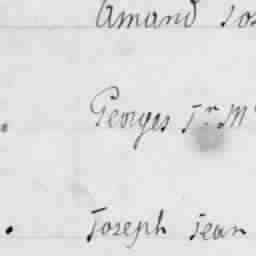 Amand Jos
Georges Jn M
Joseph Jean